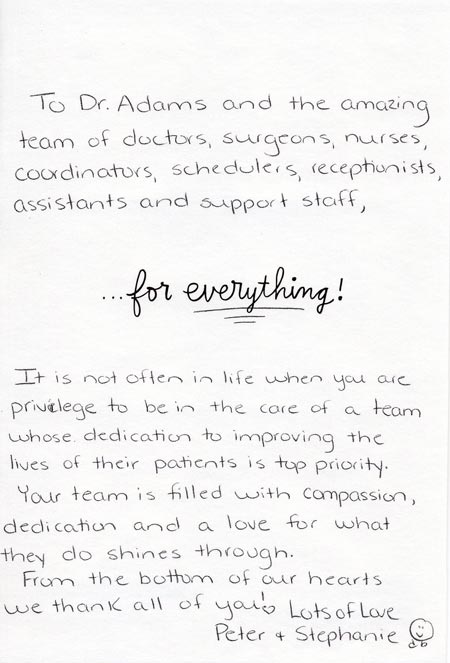 To Dr. Adams and the amazing
team of doctors, surgeons, nurses,
coordinators, schedulers, receptionists,
assistants and support staff,
...for everything!
It is not often in life when you are
privilege to be in the care of a team
whose dedication to improving the
lives of their patients is top priority.
Your team is filled with compassion,
dedication and a love for what
they do shines through.
From the bottom of our hearts
we thank all of you! Lots of Love
Peter + Stephanie